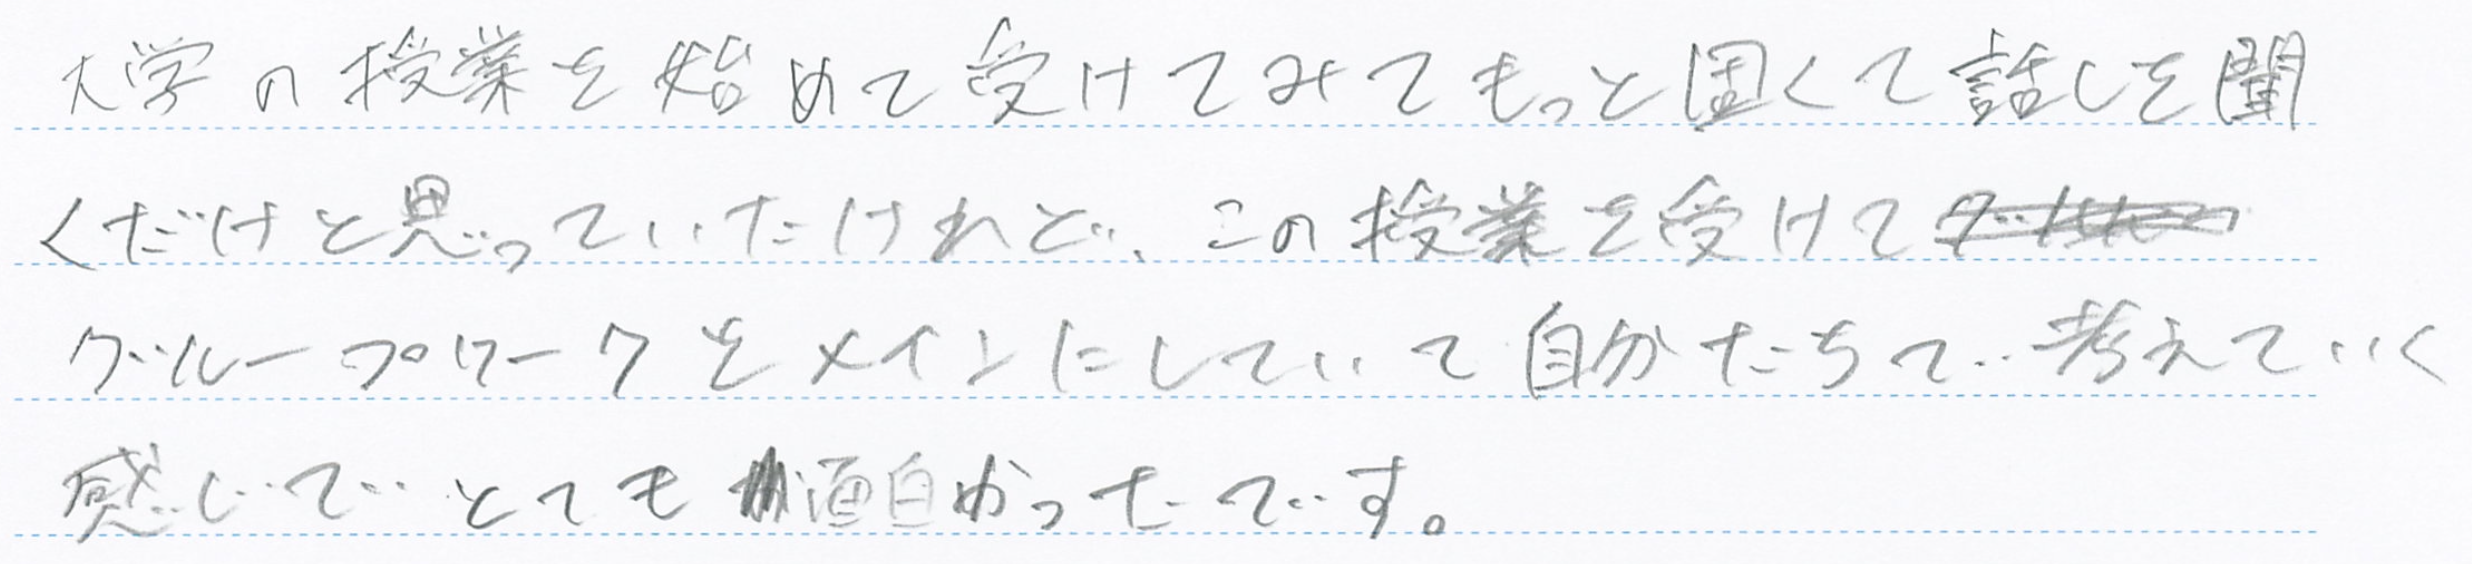 大学の授業を始めて受けてみてもっと固くて話しを聞
くだけと思っていたけれど、この授業を受けて
グループワークをメインにしていて自分たちで考えていく
感じでとても面白かったです。